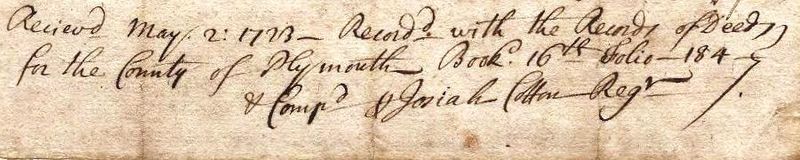 Reciev'd May. 2: 1723 — Record'd with the Records of Deeds
for the County of Plymouth — Book. 16th Folio — 184 —
& Comp'd ⅌ Josiah Cotton Regr